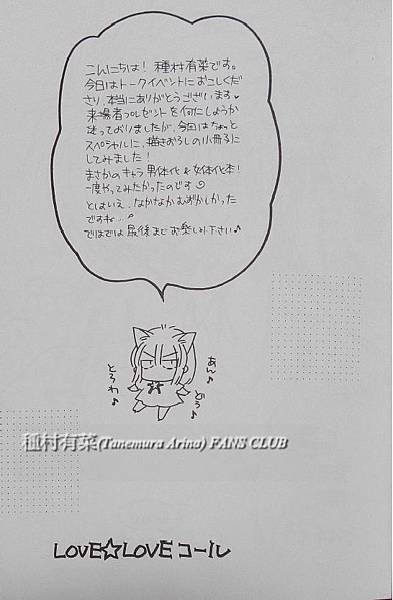 こんにちは! 種村有菜です。
今日はトークイベントにおこしくだ
さり、本当にありがとうございます♥
来場者プレゼントを何にしようか
迷っておりましたが、今回はちょっと
スペシャルに、描きおろしの小冊子に
してみました!
まさかのキャラ男体化&女体化本!
一度やってみたかったのです♡
とはいえ、なかなかむずかしかった
ですね…
ではでは最後までお楽しみ下さい♪
あん♪
どう♪
とろわ♪
種村有菜(Tanemura Arina) FANS CLUB
LOVE☆LOVEコール